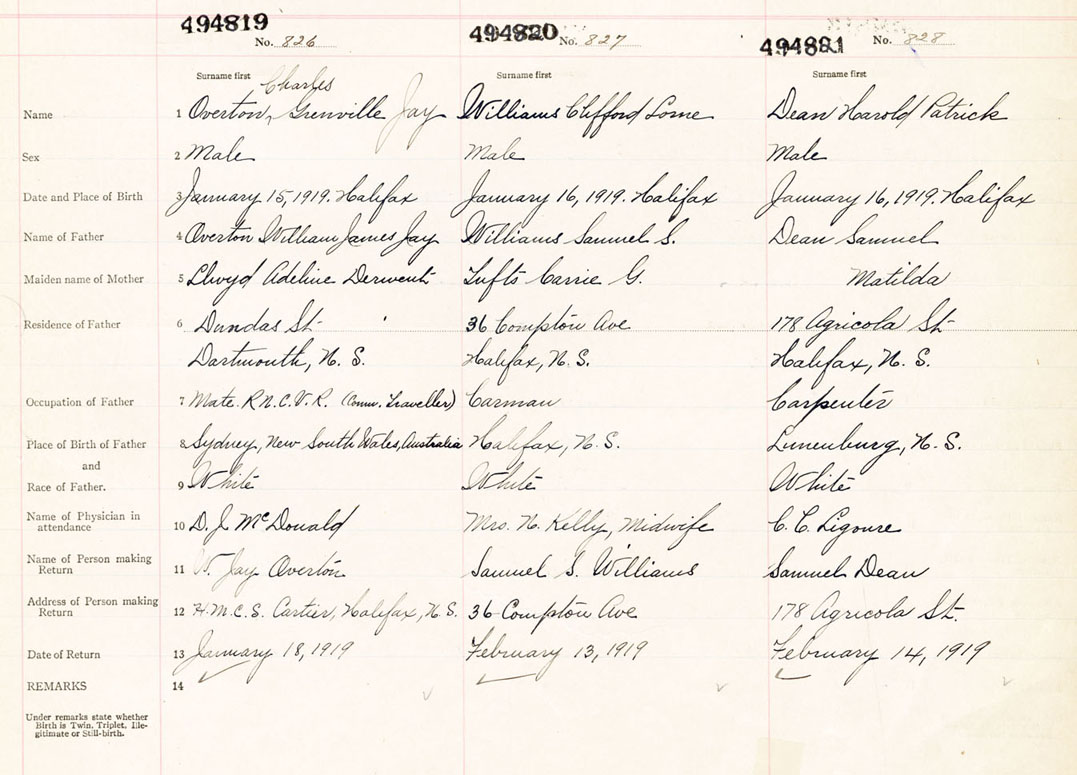 494819 494820 494821
No. 826 No. 827 No. 828
Surname first Surname first Surname first
Charles
Name 1 Overton, Grenville Jay Williams Clifford Lorne Dean Harold Patrick
Sex 2 Male Male Male
Date and Place of Birth 3 January 15, 1919. Halifax January 16, 1919. Halifax January 16, 1919. Halifax
Name of Father 4 Overton William James Jay Williams Samuel S. Dean Samuel
Maiden name of Mother 5 Llwyd Adeline Derwent Tufts Carrie G. Matilda
Residence of Father 6 Dundas St. 36 Compton Ave 178 Agricola St.
Dartmouth, N. S. Halifax, N. S. Halifax, N. S.
Occupation of Father 7 Mate. R.N.C.V.R. (Comm. Traveller) Carman Carpenter
Place of Birth of Father 8 Sydney, New South Wales, Australia Halifax, N. S. Lunenburg, N. S.
and
Race of Father. 9 White White White
Name of Physician in
attendance 10 D. J. McDonald Mrs. N. Kelly, Midwife C. C. Ligoure
Name of Person making
Return 11 W. Jay Overton Samuel S. Williams Samuel Dean
Address of Person making
Return 12 H.M.C.S. Cartier, Halifax, N. S. 36 Compton Ave 178 Agricola St.
Date of Return 13 January 18, 1919 February 13, 1919 February 14, 1919
REMARKS 14
Under remarks state whether
Birth is Twin, Triplet, Ille-
gitimate or Still-birth.